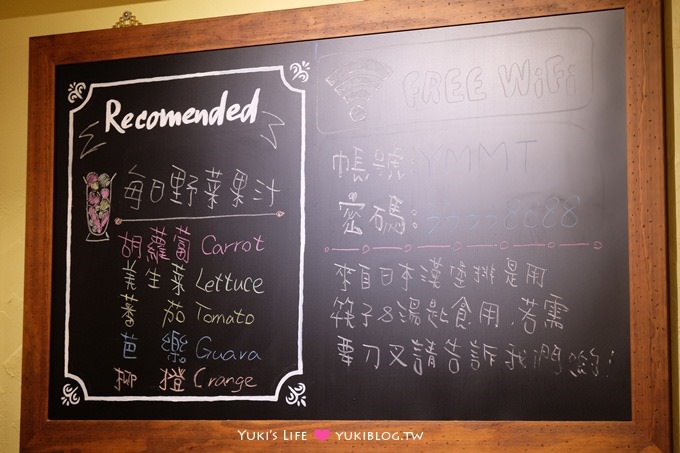 Recomended
每日野菜果汁
胡蘿蔔 Carrot
美生菜 Lettuce
蕃茄 Tomato
芭樂 Guava
柳橙 Orange
FREE WiFi
帳號:YMMT
密碼:
來自日本漢堡排是用
筷子&湯匙食用.若需
要刀叉請告訴我們喲!
YUKI'S LIFE ♥ YUKIBLOG.TW